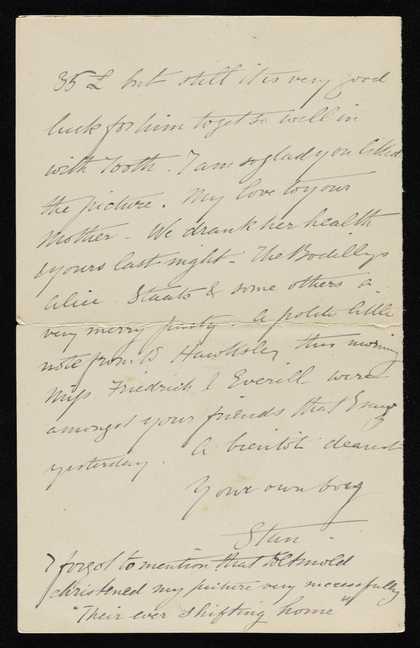 35 £ but still it is very good
luck for him to get so well in
with Tooth. I am so glad you liked
the picture. My love to your
Mother – We drank her health
& yours last night – The Bodillys
Alice Staats & some others a
very merry party. A polite little
note from B this morning
Miss Friedrich & Everill were
amongst your friends that I met
yesterday. A bientôt dearest
Your own boy
Stan.
I forgot to mention that
christened my picture very successfully
"Their ever shifting home"